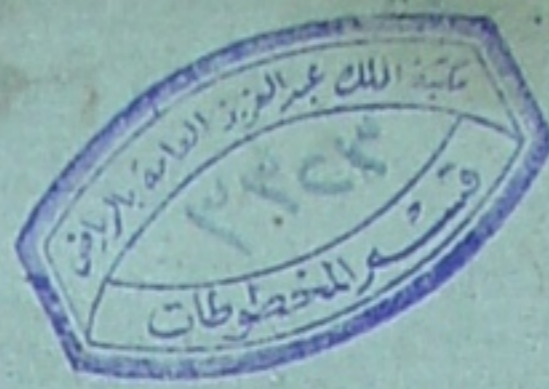 مكتبة الملك عبد العزيز العامة بالرياض
٣٣٢٣
قسم المخطوطات